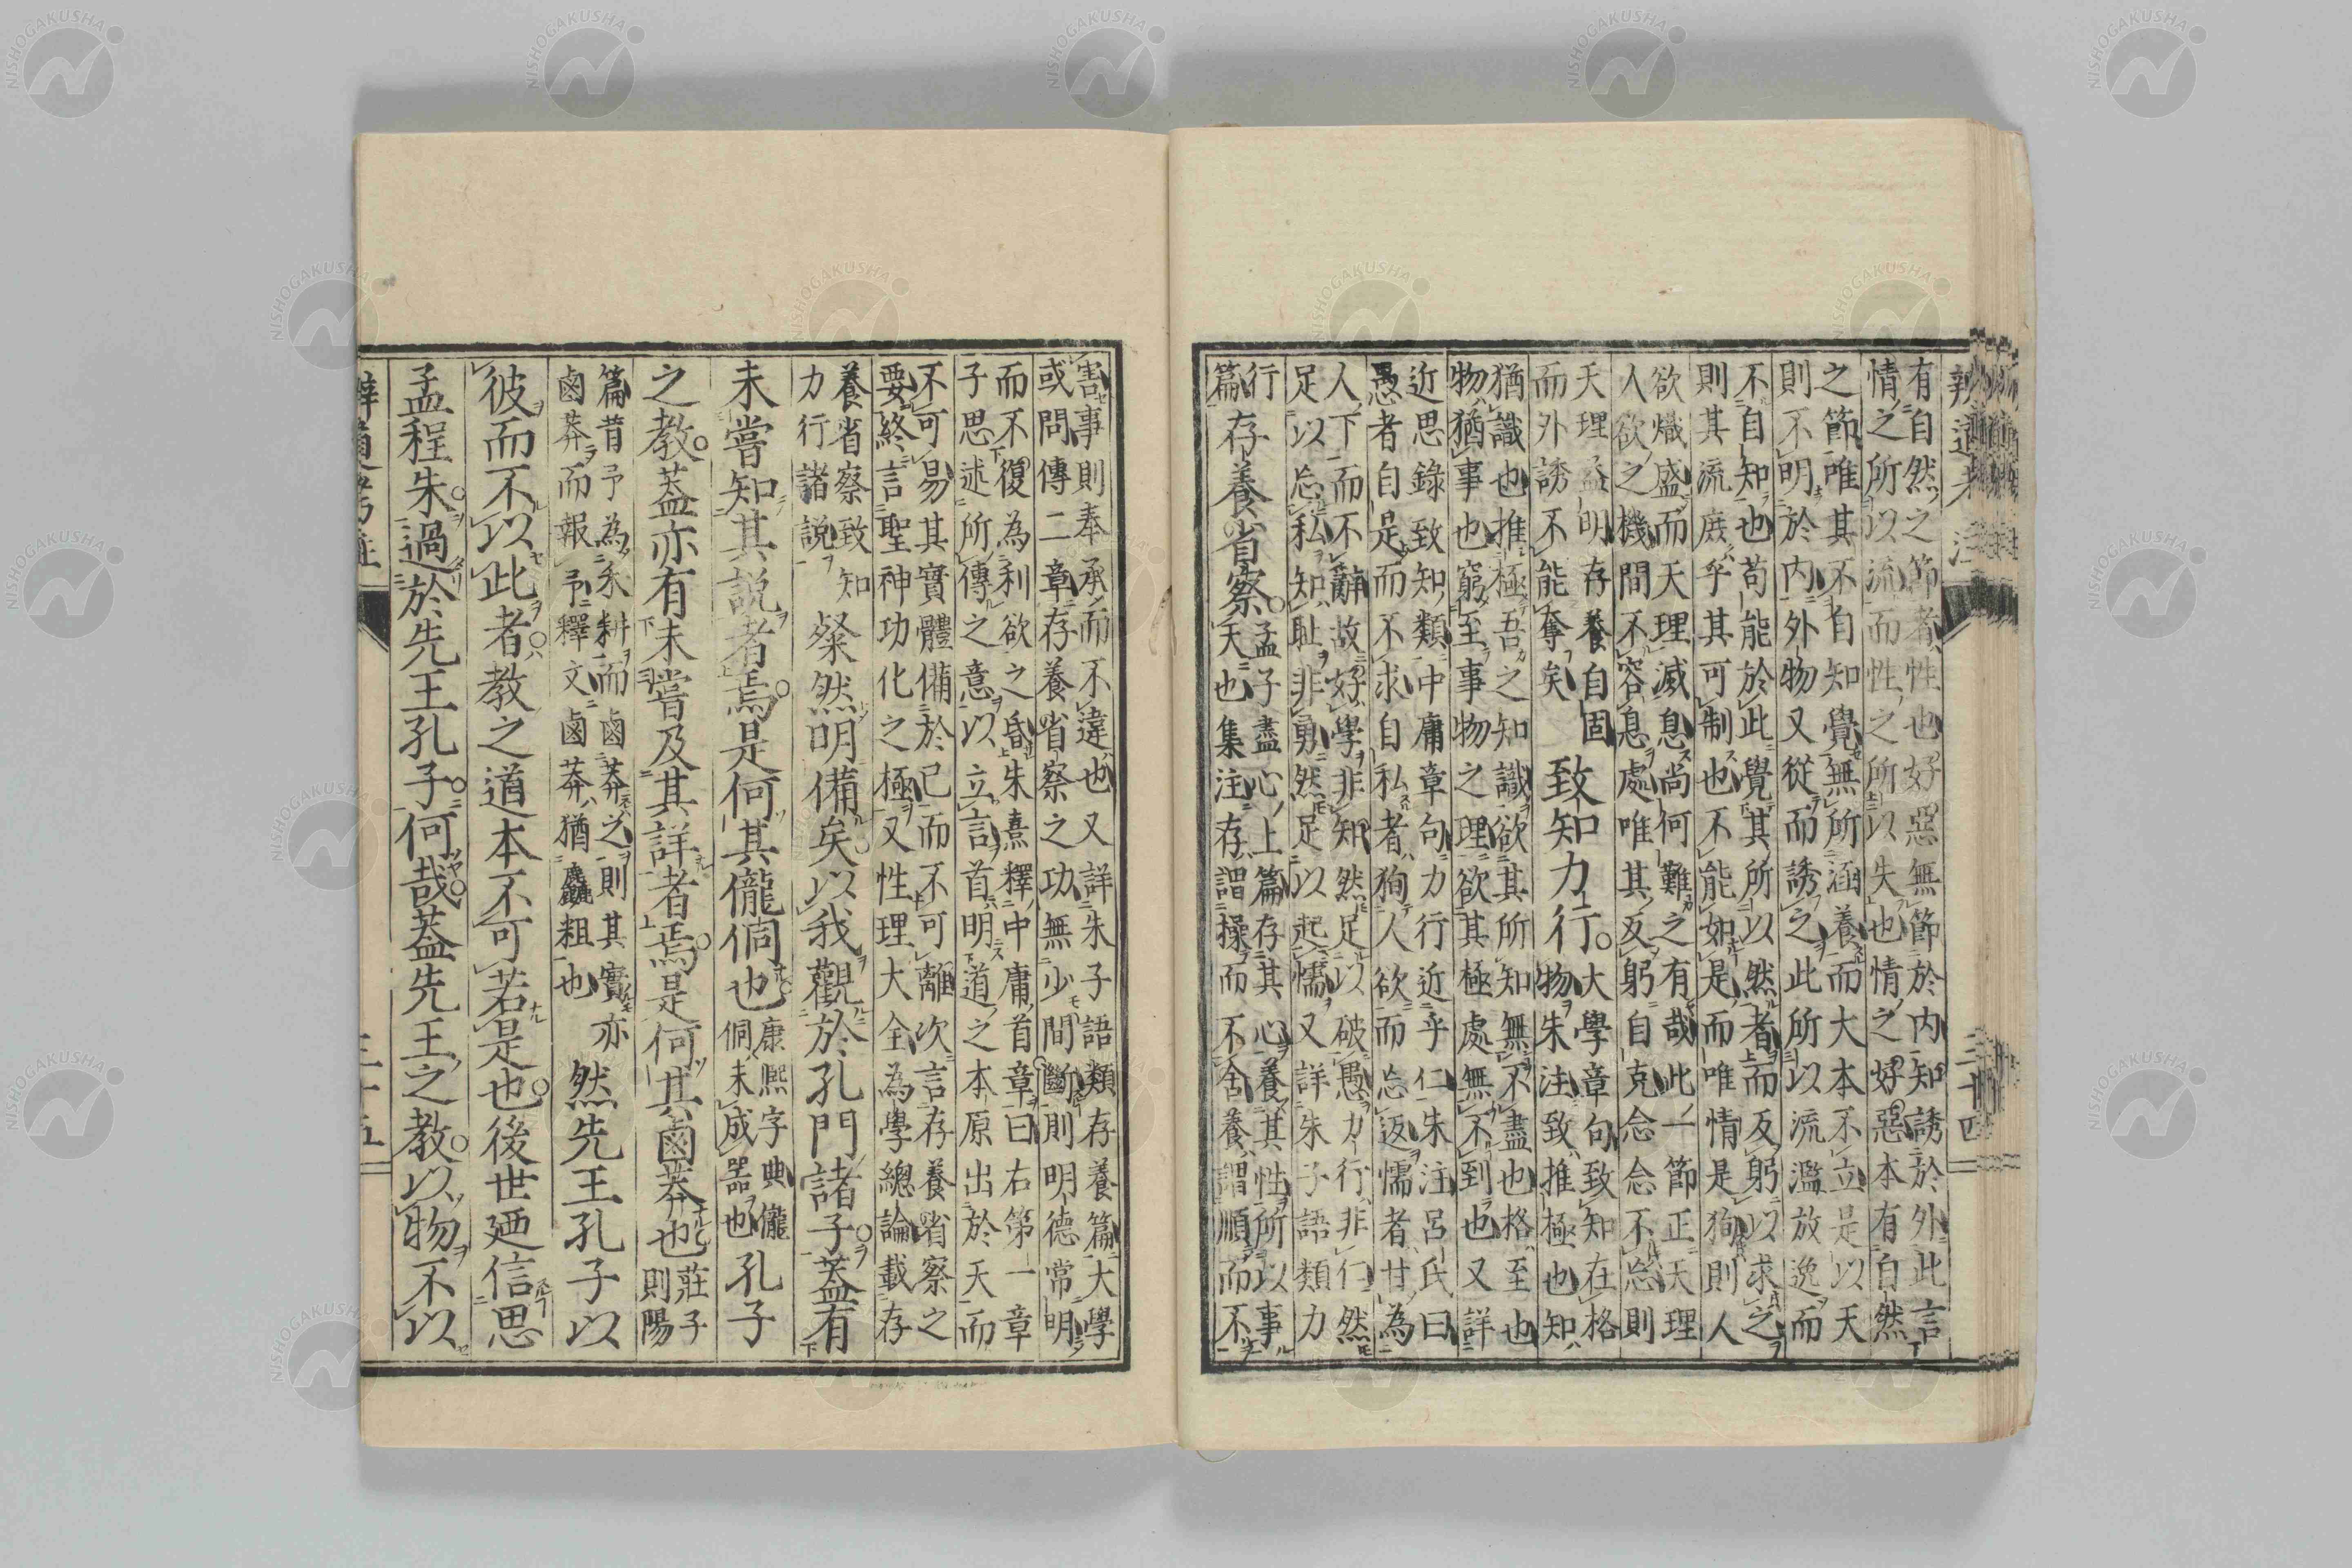 有自然之節者性也好惡無節於內知誘於外此言
情之所以流而性之所以失也情之好惡本有自然
之節唯其不自知覺無所涵養而大本不立是以天
則不明於內外物又從而誘之此所以流濫放逸而
不自知也苟能於此覺其所以然者而反躬以求之
則其流庶乎其可制也不能如是而唯情是狥則人
欲熾盛而天理滅息尚何難之有哉此一節正天理
人欲之機間不容息處唯其反躬自克念念不忘則
天理益明存養自固
而外誘不能奪矣
致知力行。
大學章句致知在格
物朱注致推極也知
猶識也推極吾之知識欲其所知無不盡也格至也
物猶事也窮至事物之理欲其極處無不到也又詳
近思錄致知類中庸章句力行近乎仁朱注呂氏曰
愚者自是而不求自私者狥人欲而忘返懦者甘為
人下而不辭故好學非知然足以破愚力行非仁然
足以忘私知耻非勇然足以起懦又詳朱子語類力
行
篇
存養省察。
孟子盡心上篇存其心養其性所以事
天也集注存謂操而不舍養謂順而不
害事則奉承而不違也又詳朱子語類存養篇大學
或問傳二章存養省察之功無少間斷則明德常明
而不復為利欲之昏朱熹釋中庸首章曰右第一章
子思述所傳之意以立言首明道之本原出於天而
不可易其實體備於己而不可離次言存養省察之
要終言聖神功化之極又性理大全為學總論載存
養省察致知
力行諸說
粲然明備矣以我觀於孔門諸子蓋有
未嘗知其說者焉。是何其儱侗也
康熙字典儱
侗未成器也
孔子
之教。蓋亦有未嘗及其詳者焉。是何其鹵莽也
莊子
則陽
篇昔予為禾耕而鹵莽之則其實亦
鹵莽而報予釋文鹵莽猶麤粗也
然先王孔子以
彼而不以此者。教之道本不可若是也。後世廼信思
孟程朱。過於先王孔子。何哉。蓋先王之教。以物不以
辨道考注
三十四
三十五
NISHOGAKUSHA